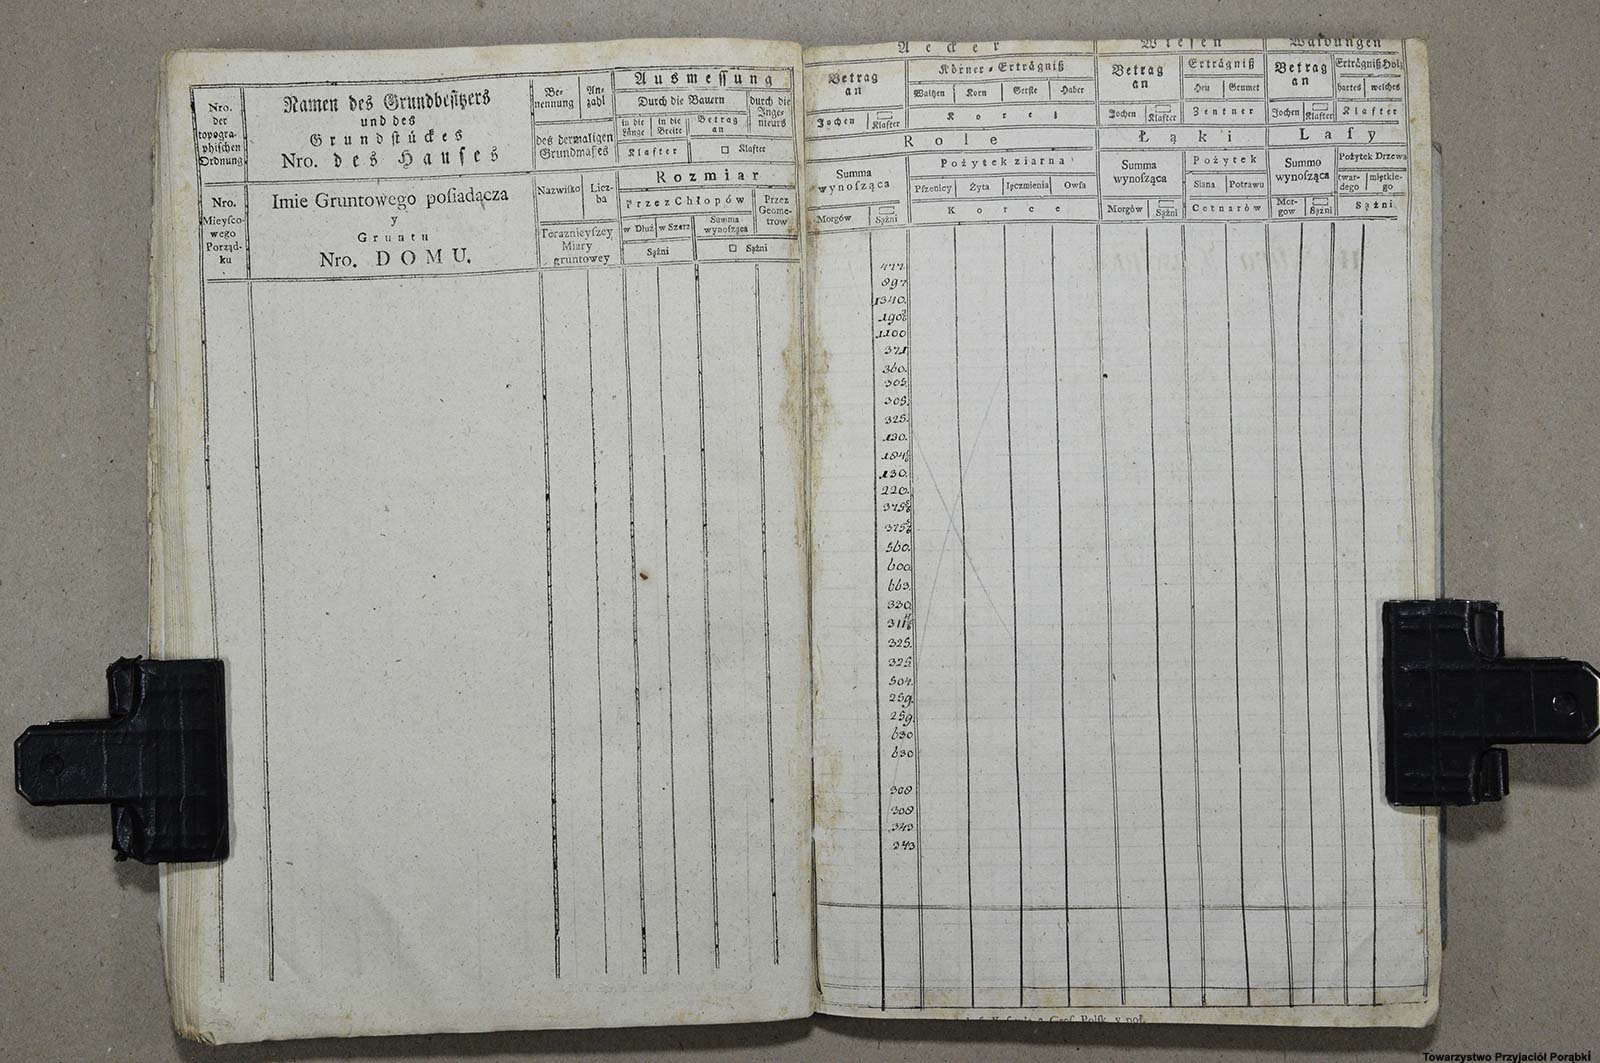 Nro. der topogra-phischen Ordnung
Namen des Grundbesitzers
und des
Grundstückes
Nro. des Hauses
Be-nennung
An-zahl
des dermaligen Grundmaßes
Ausmessung
Durch die Bauern
durch die Inge-nieurs
in die Länge
in die Breite
Betrag an
Klafter
□ Klafter
Nro. Mieyſco-wego Porząd-ku
Imie Gruntowego poſiadącza
y
Gruntu
Nro. DOMU.
Nazwiſko
Licz-ba
Teraznieyſzey Miary gruntowey
Rozmiar
przez Chłopów
Przez Geome-trow
w Dłuż
w Szerz
Summa wynoſząca
Sążni
□ Sążni
Aecker
Wiesen
Waldungen
Betrag an
Körner-Erträgniß
Waitzen
Korn
Gerſte
Haber
Jochen
□ Klafter
Korez
Betrag an
Erträgniß
Heu
Grumet
Jochen
□ Klafter
Zentner
Betrag an
Erträgniß Holz
hartes
weiches
Jochen
□ Klafter
Klafter
Role
Łąki
Laſy
Summa wynoſząca
Pożytek ziarna
Pſzenicy
Żyta
Ięczmienia
Owſa
Morgów
□ Sążni
Korce
Summa wynoſząca
Pożytek
Siana
Potrawu
Morgów
□ Sążni
Cetnarów
Summo wynoſząca
Pożytek Drzewa
twar-dego
miętkie-go
Mor-gow
□ Sążni
Sążni
477.
897
1340.
1100
371
360.
305.
305.
325.
130.
130.
220.
560.
600
663.
330.
325.
325.
504.
259.
259.
630
630
308
308
343
343
Towarzystwo Przyjaciół Porąbki